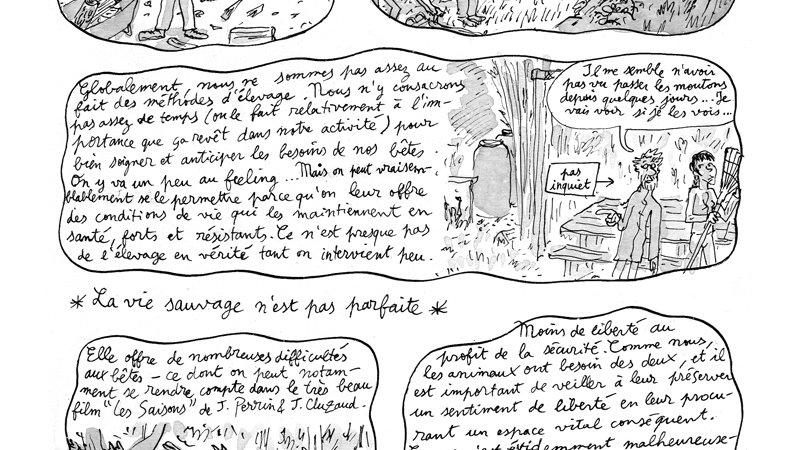 Globalement, nous ne sommes pas assez au
fait des méthodes d'élevage. Nous n'y consacrons
pas assez de temps (ou le fait relativement à l'im-
portance que ça revêt dans notre activité) pour
bien soigner et anticiper les besoins de nos bêtes.
On y va un peu au feeling... Mais on peut vraisem-
blablement se le permettre parce qu'on leur offre
des conditions de vie qui les maintiennent en
santé, forts et résistants. Ce n'est presque pas
de l'élevage en vérité tant on intervient peu.
Il me semble n'avoir
pas vu passer les moutons
depuis quelques jours... Je
vais voir si je les vois...
pas
inquiet
* La vie sauvage n'est pas parfaite *
Elle offre de nombreuses difficultés
aux bêtes - ce dont on peut notam-
ment se rendre compte dans le très beau
film "Les Saisons" de J. Perrin & J. Cluzaud.
Moins de liberté au
profit de la sécurité. Comme nous,
les animaux ont besoin des deux, et il
est important de veiller à leur préserver
un sentiment de liberté en leur procu-
rant un espace vital conséquent.
évidemment malheureuse-